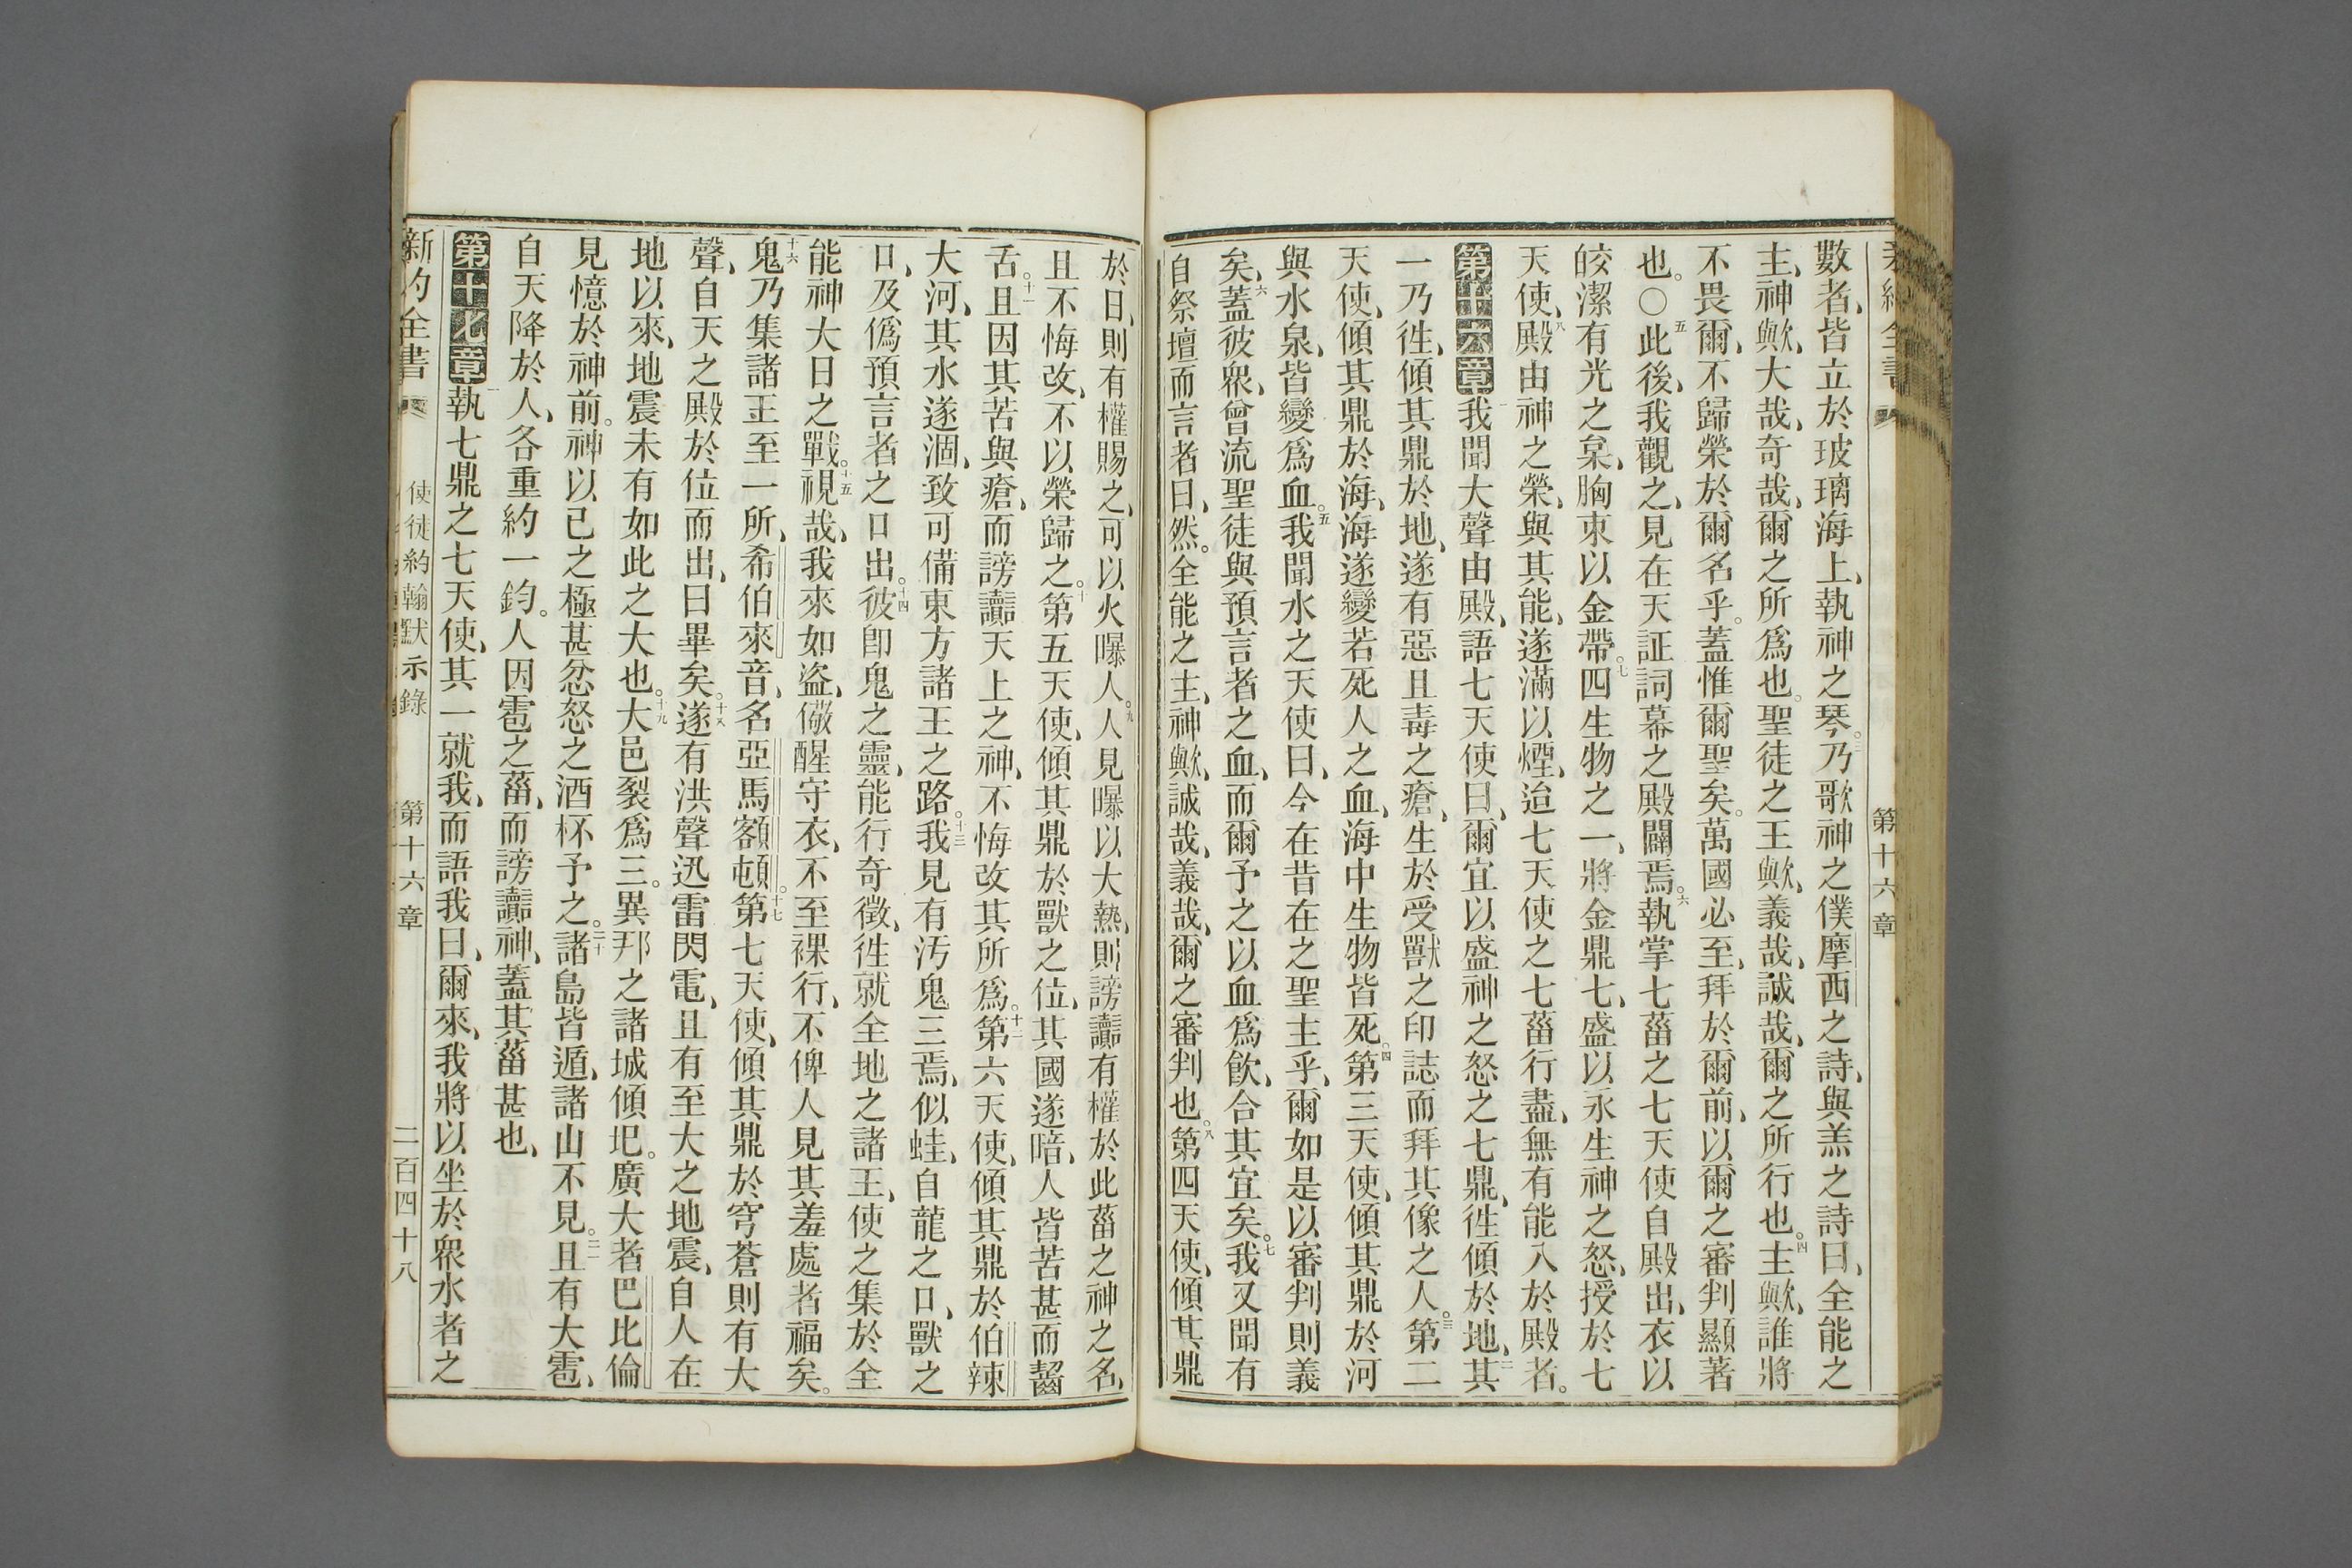 新約全書
第十六章
數者、皆立於玻璃海上、執神之琴。三乃歌神之僕摩西之詩、與羔之詩曰、全能之
主、神歟、大哉、奇哉、爾之所爲也。聖徒之王歟、義哉、誠哉、爾之所行也。四主歟、誰將
不畏爾、不歸榮於爾名乎。蓋惟爾聖矣。萬國必至、拜於爾前、以爾之審判顯著
也。〇五此後、我觀之、見在天証詞幕之殿闢焉。六執掌七菑之七天使自殿出、衣以
皎潔有光之枲、胸束以金帶。七四生物之一、將金鼎七、盛以永生神之怒、授於七
天使、八殿由神之榮、與其能、遂滿以煙、迨七天使之七菑行盡、無有能入於殿者。
第十六章一我聞大聲由殿、語七天使曰、爾宜以盛神之怒之七鼎、徃傾於地、二其
一乃徃、傾其鼎於地、遂有惡且毒之瘡、生於受獸之印誌而拜其像之人。三第二
天使、傾其鼎於海、海遂變若死人之血、海中生物皆死。四第三天使、傾其鼎於河
與水泉、皆變爲血。五我聞水之天使曰、今在昔在之聖主乎、爾如是以審判則義
矣、六蓋彼衆、曾流聖徒與預言者之血、而爾予之以血爲飲、合其宜矣。七我又聞有
自祭壇而言者曰、然。全能之主、神歟、誠哉、義哉、爾之審判也。八第四天使、傾其鼎
於日、則有權賜之、可以火曝人。九人見曝以大熱、則謗讟有權於此菑之神之名、
且不悔改、不以榮歸之。十第五天使、傾其鼎於獸之位、其國遂暗、人皆苦甚而齧
舌。十一且因其苦與瘡、而謗讟天上之神、不悔改其所爲。十二第六天使、傾其鼎於伯辣
大河、其水遂涸、致可備東方諸王之路。十三我見有汚鬼三焉、似蛙、自龍之口、獸之
口、及僞預言者之口出。十四彼卽鬼之靈、能行奇徵、徃就全地之諸王、使之集於全
能神大日之戰。十五視哉、我來如盜、儆醒守衣、不至裸行、不俾人見其羞處者福矣。
十六鬼乃集諸王至一所、希伯來音、名亞馬額頓。十七第七天使、傾其鼎於穹蒼、則有大
聲、自天之殿於位而出、曰畢矣。十八遂有洪聲迅雷閃電、且有至大之地震、自人在
地以來、地震未有如此之大也。十九大邑裂爲三。異邦之諸城傾圯。廣大者巴比倫
見憶於神前。神以己之極甚忿怒之酒杯予之。二十諸島皆遁、諸山不見。二一且有大雹、
自天降於人、各重約一鈞。人因雹之菑、而謗讟神、蓋其菑甚也、
第十七章一執七鼎之七天使、其一就我、而語我曰、爾來、我將以坐於衆水者之
新約全書
使徒約翰默示錄
第十六章
二百四十八